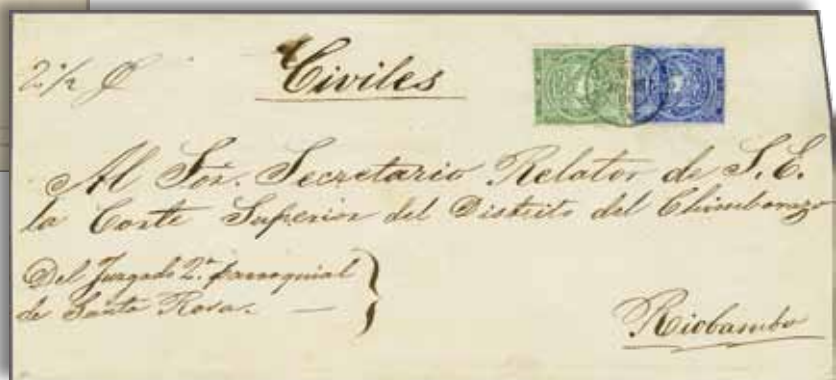 2 1/2 ₡ Civiles
Al Sõr. Secretario Relator de S. E.
la Corte Superior del Distrito del Chimborazo
Del Juzgado 2.º parroquial
de Santa Rosa. —
Riobamba